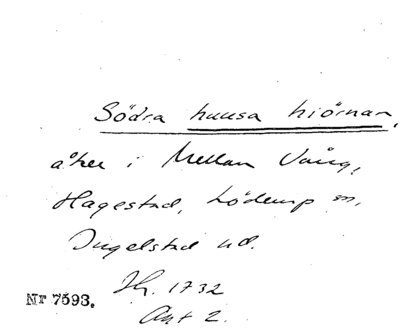 Södra huusa hiörnan,
åker i Mellan Vång,
Hagestad, Löderup sn,
Ingelstad hd.
Jb. 1732
Nr 7593.
Akt 2.